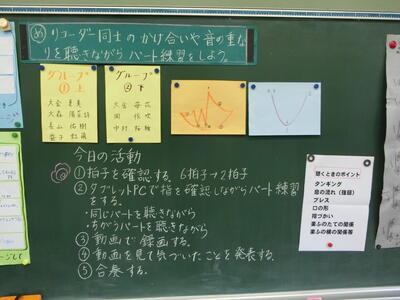 め リコーダー同士のかけ合いや音の重な
りを聴きながらパート練習をしよう。
グループ
①上
グループ
②下
今日の活動
①拍子を確認する。6拍子→2拍子
②タブレットPCで指を確認しながらパート練習
をする。
・同じパートを聴きながら
・ちがうパートを聴きながら
③動画で録画する。
④動画を見て気づいたことを発表する。
⑤合奏する。
聴くときのポイント
タンギング
息の流れ(強弱)
ブレス
口の形
指づかい
楽ふのたての関係
楽ふの横の関係等